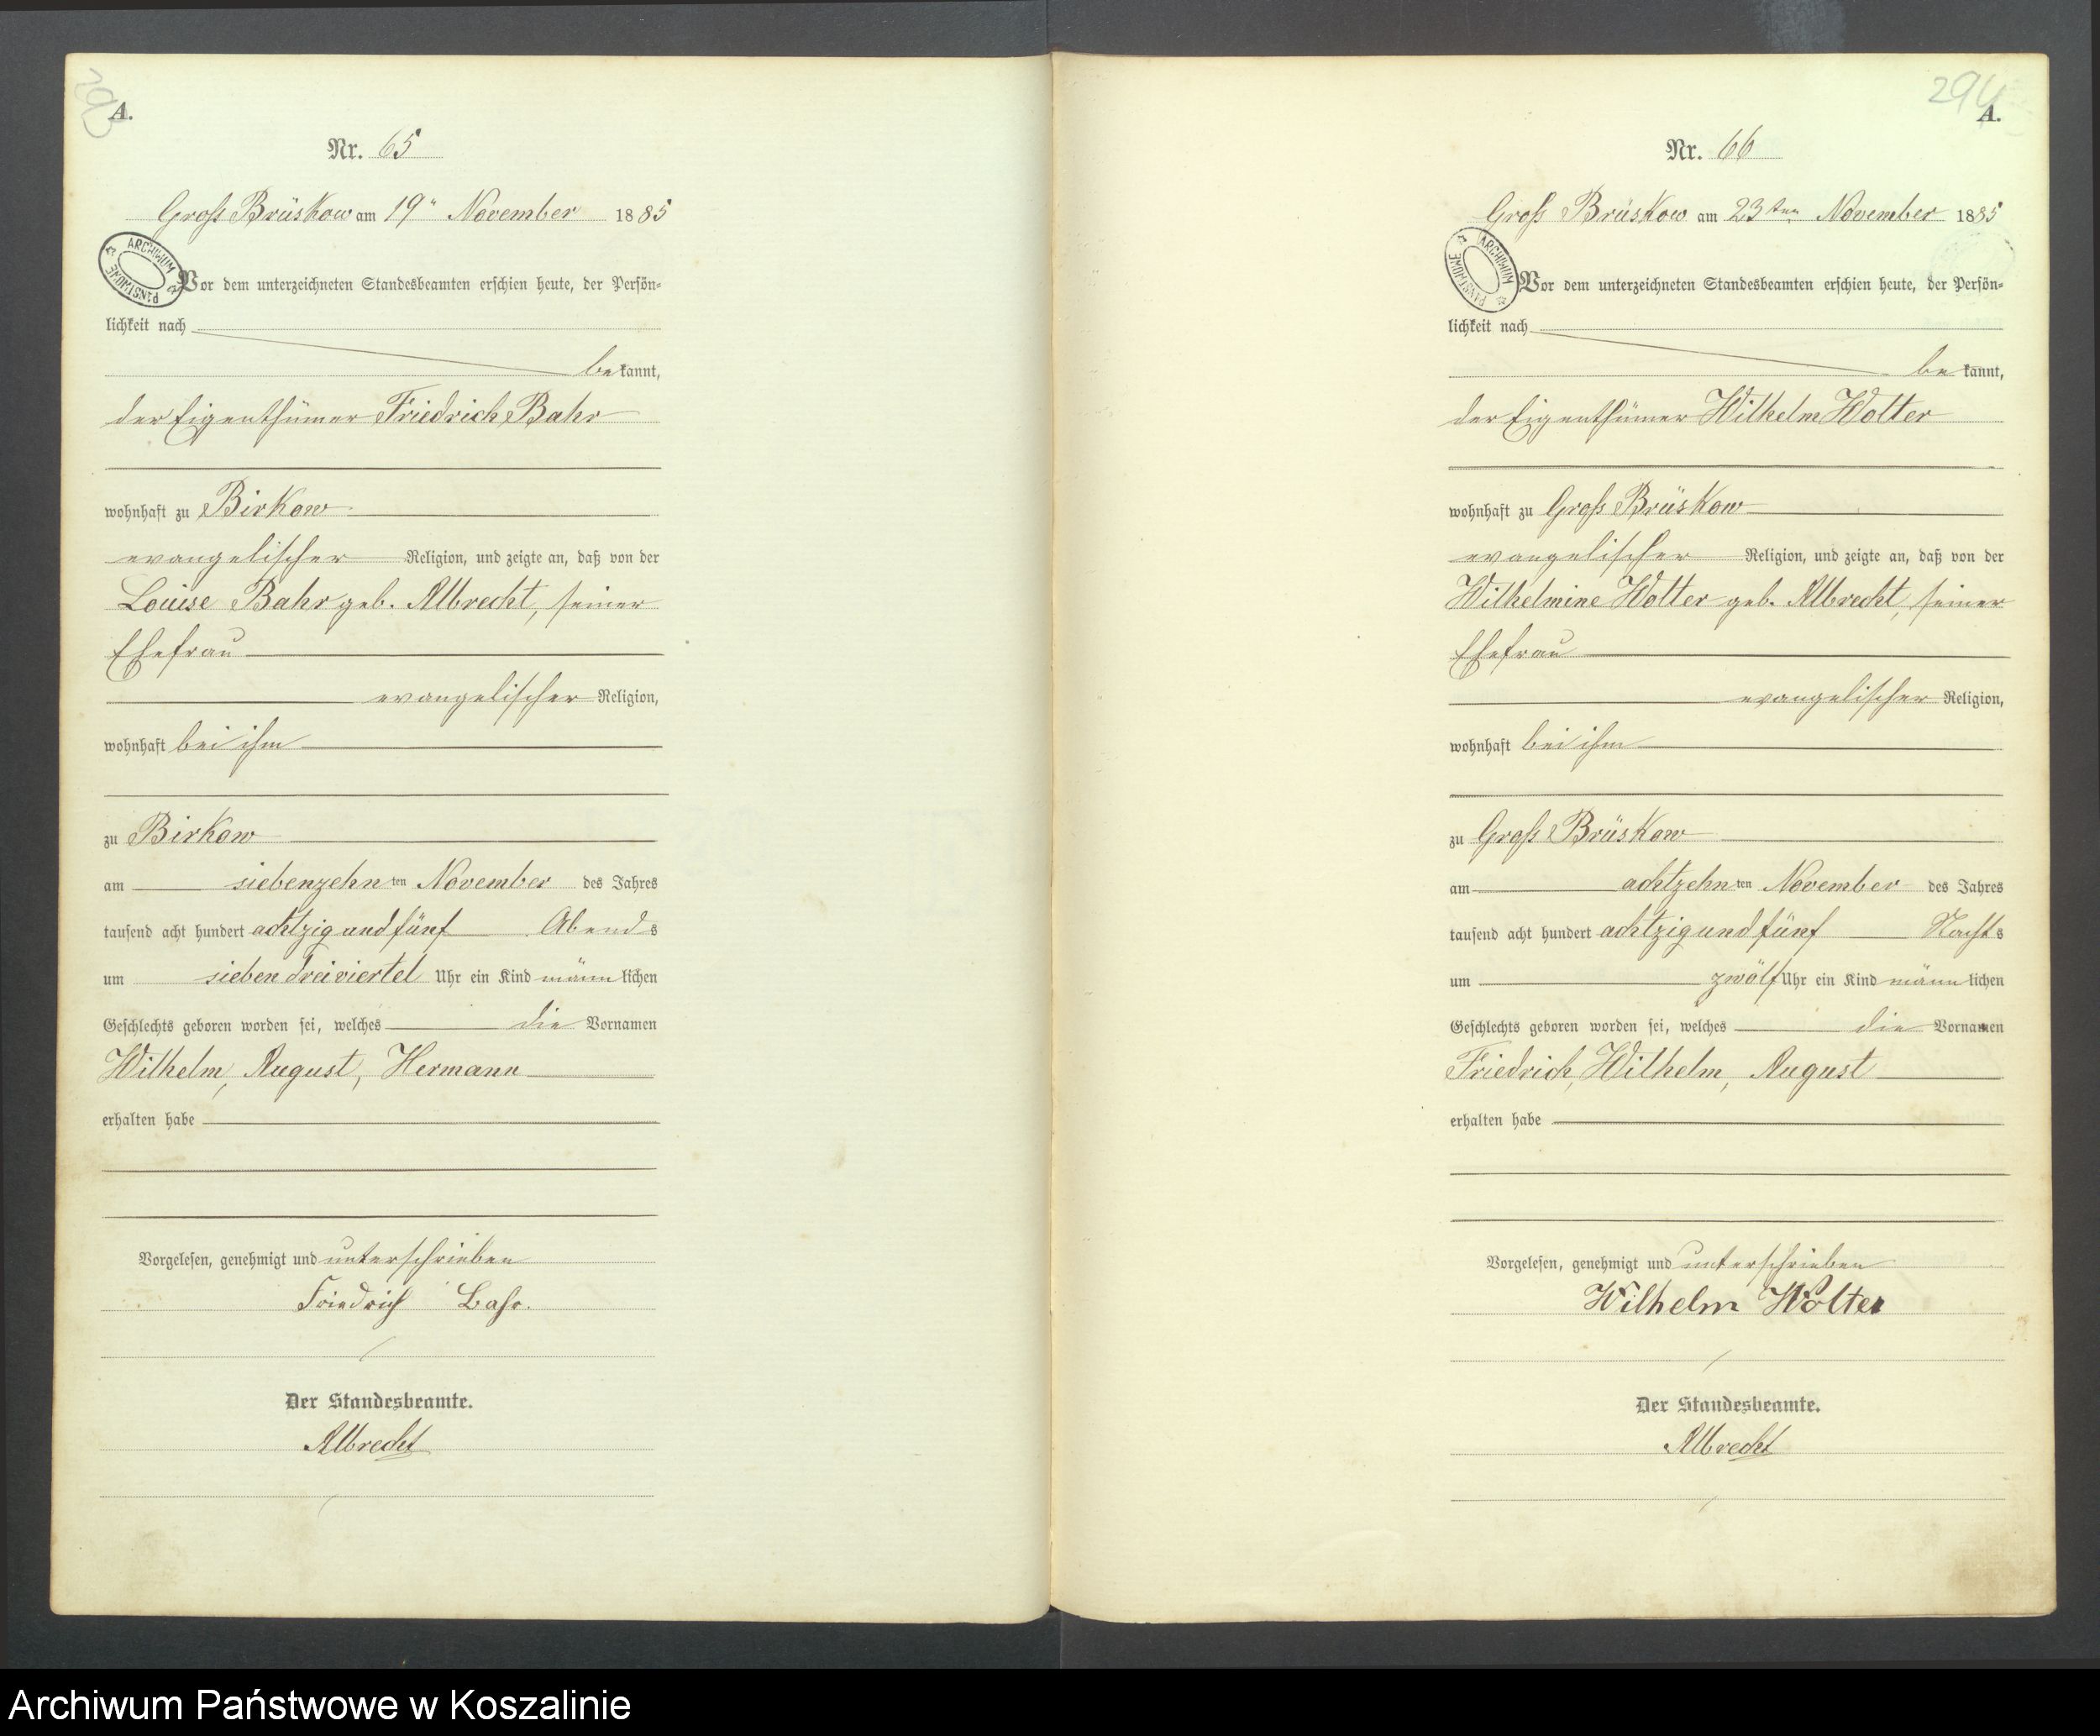 A.
Nr. 65
Groß Brüskow am 19" November 1885
ARCHIWUM PAŃSTWOWE
Vor dem unterzeichneten Standesbeamten erschien heute, der Persön-
lichkeit nach
be kannt,
der Eigenthümer Friedrich Bahr
wohnhaft zu Birkow
evangelischer Religion, und zeigte an, daß von der
Louise Bahr geb. Albrecht, seiner
Ehefrau
evangelischer Religion,
wohnhaft bei ihm
zu Birkow
am siebenzehn ten November des Jahres
tausend acht hundert achtzig und fünf Abend s
um sieben dreiviertel Uhr ein Kind männ lichen
Geschlechts geboren worden sei, welches die Vornamen
Wilhelm, August, Hermann
erhalten habe
Vorgelesen, genehmigt und unterschrieben
Friedrich Bahr.
Der Standesbeamte.
Albrecht
294
A.
Nr. 66
Groß Brüskow am 23ten November 1885
ARCHIWUM PAŃSTWOWE
Vor dem unterzeichneten Standesbeamten erschien heute, der Persön-
lichkeit nach
be kannt,
der Eigenthümer Wilhelm Wolter
wohnhaft zu Groß Brüskow
evangelischer Religion, und zeigte an, daß von der
Wilhelmine Wolter geb. Albrecht, seiner
Ehefrau
evangelischer Religion,
wohnhaft bei ihm
zu Groß Brüskow
am achtzehn ten November des Jahres
tausend acht hundert achtzig und fünf Nacht s
um zwölf Uhr ein Kind männ lichen
Geschlechts geboren worden sei, welches die Vornamen
Friedrich, Wilhelm, August
erhalten habe
Vorgelesen, genehmigt und unterschrieben
Wilhelm Wolter
Der Standesbeamte.
Albrecht
Archiwum Państwowe w Koszalinie